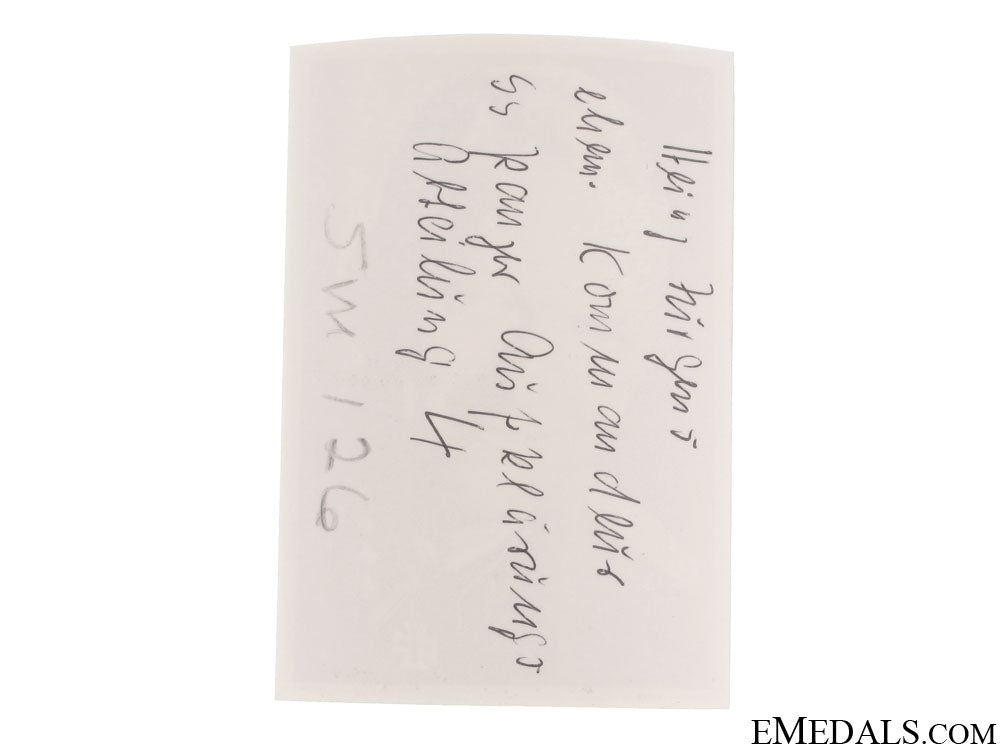 Heinz Jürgens
ehem. Kommandeur
SS Panzer Aufklärungs
Abteilung 4
5M 126
EMEDALS.COM